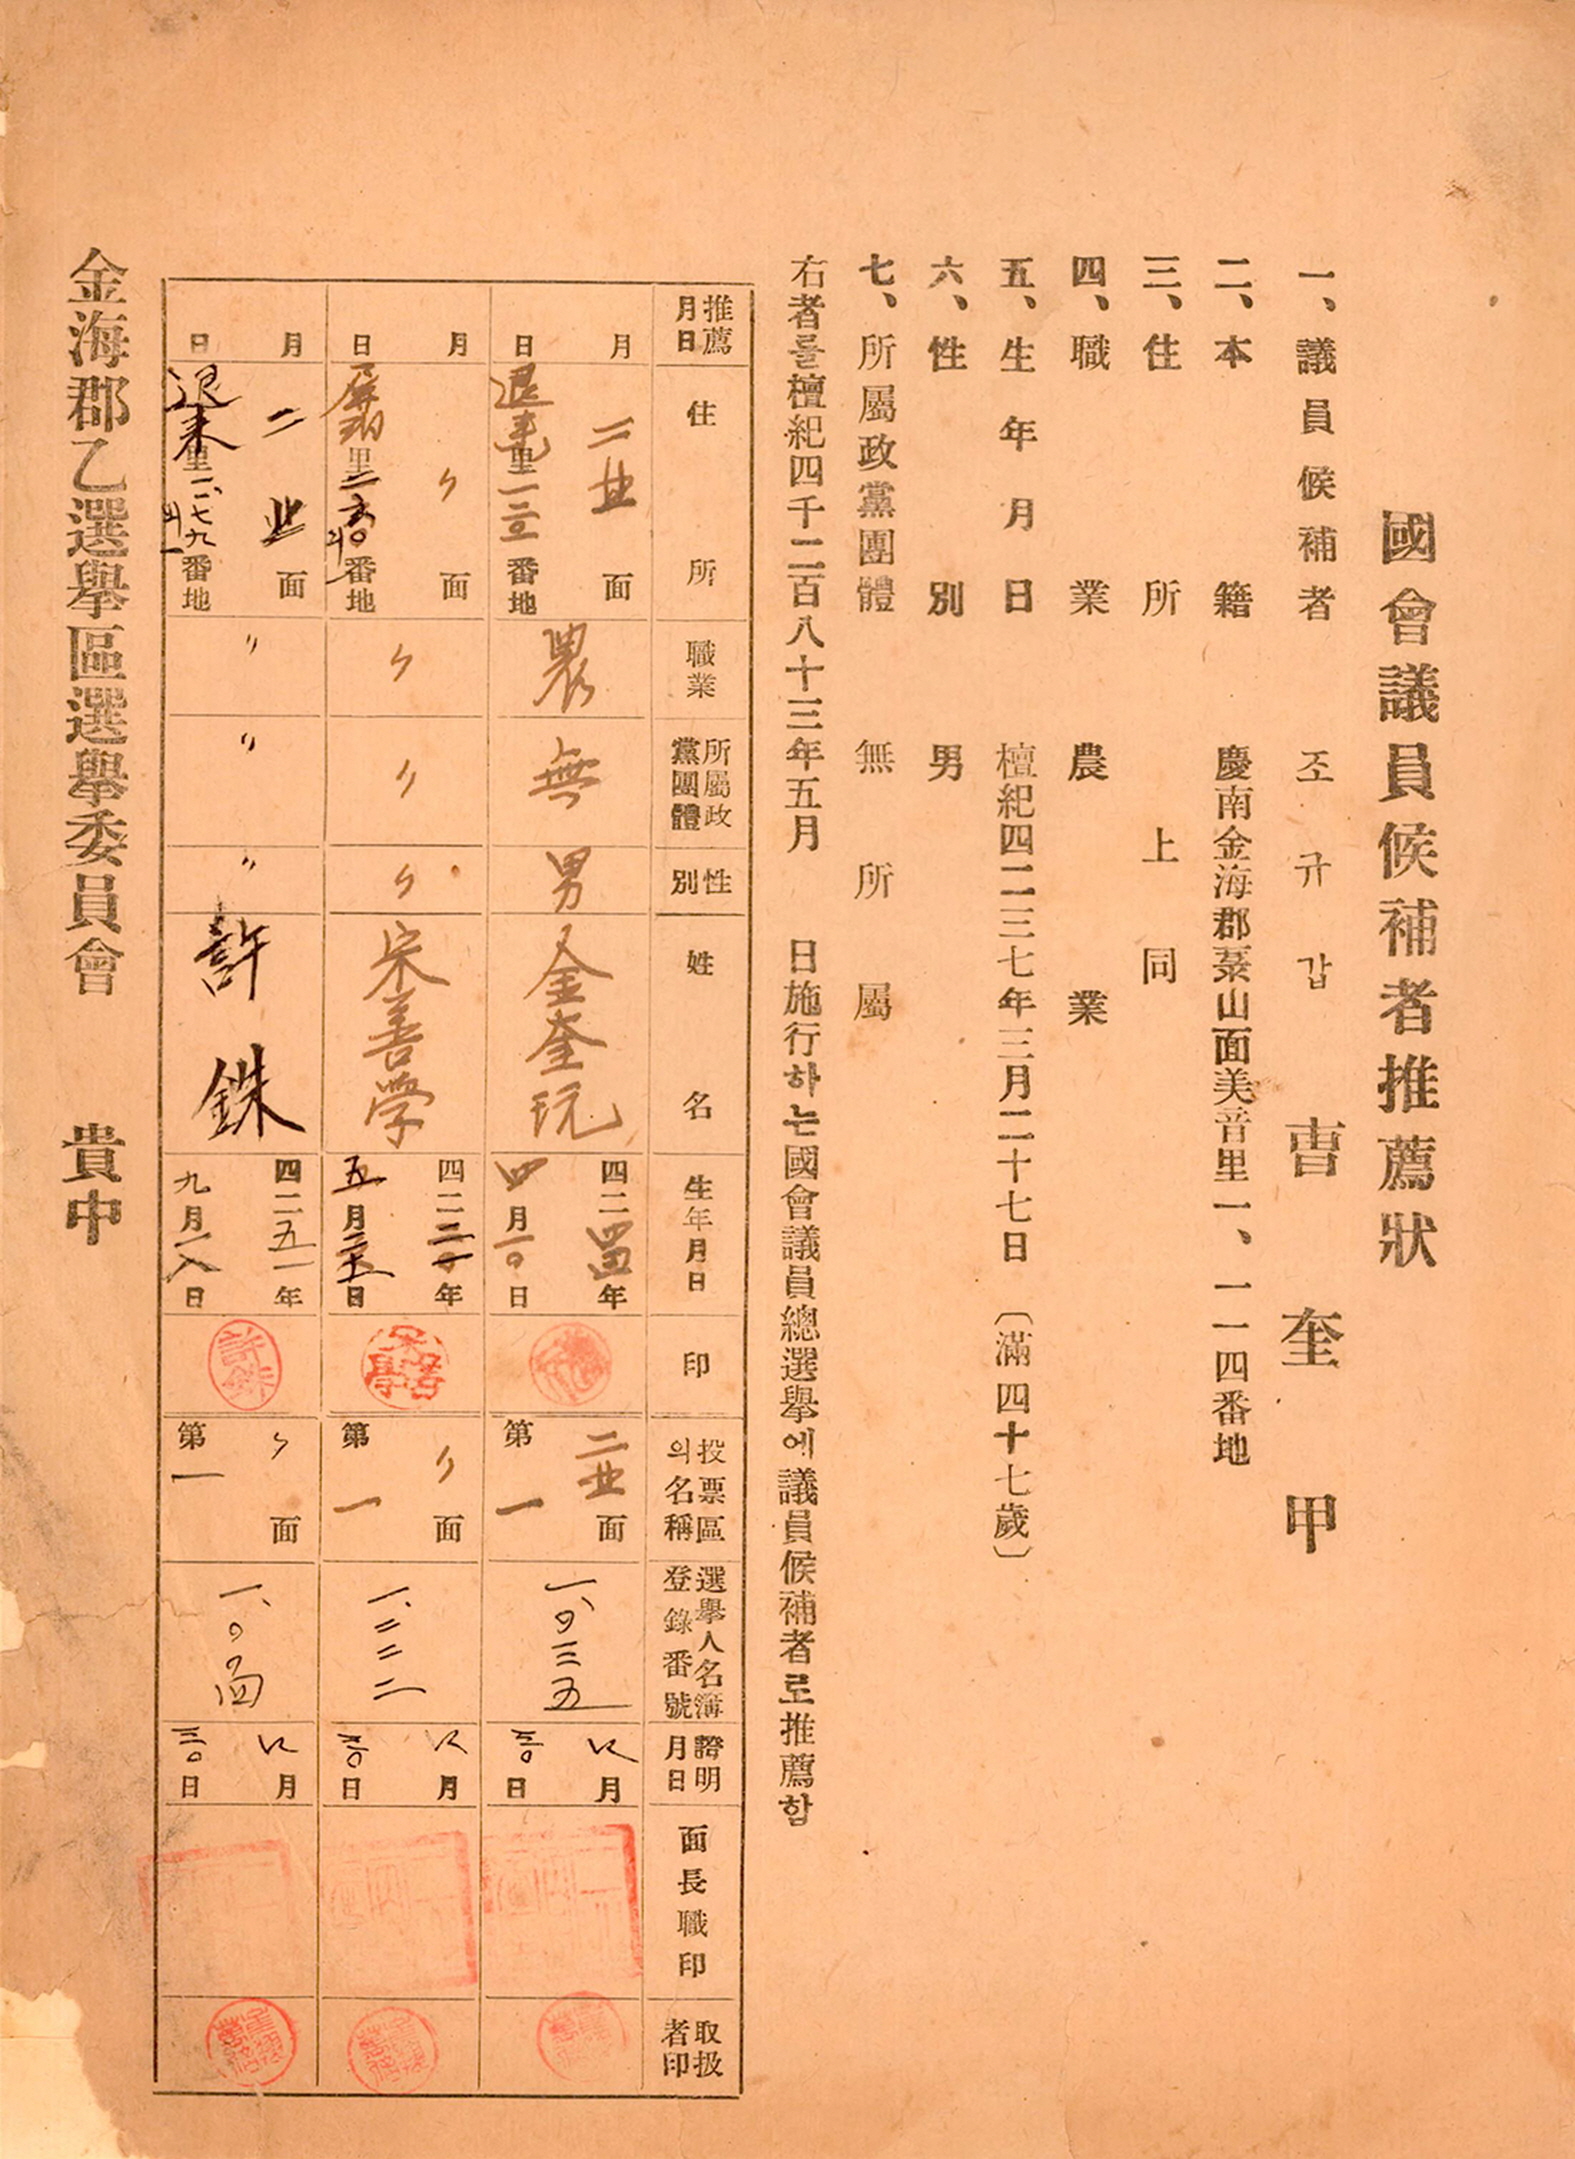 國會議員候補者推薦狀
一、議員候補者 조규갑 曺奎甲
二、本籍 慶南金海郡菉山面美音里一、一一四番地
三、住所 上同
四、職業 農業
五、生年月日 檀紀四二三七年三月二十七日 (滿四十七歲)
六、性別 男
七、所屬政黨團體 無所屬
右者를檀紀四千二百八十三年五月 日施行하는國會議員總選擧에議員候補者로推薦함
推薦月日 住所 職業 所屬政黨團體 性別 姓名 生年月日 印 投票區의名稱 選擧人名簿登錄番號 證明月日 面長職印 取扱者印
月 二北面 農 無 男 金奎玩 四二四四年 二北面 一、〇三五 月
日 退來里一三〇番地 四月一〇日 第一 三〇日
月 〃面 〃 〃 〃 宋善学 四二二〇年 〃面 一、二二二 月
日 里 番地 五月 日 第一 三〇日
月 二北面 〃 〃 〃 許銖 四二五一年 〃面 一、〇四 月
日 退來里一、一七九番地 九月一八日 第一 三〇日
金海郡乙選擧區選擧委員會 貴中